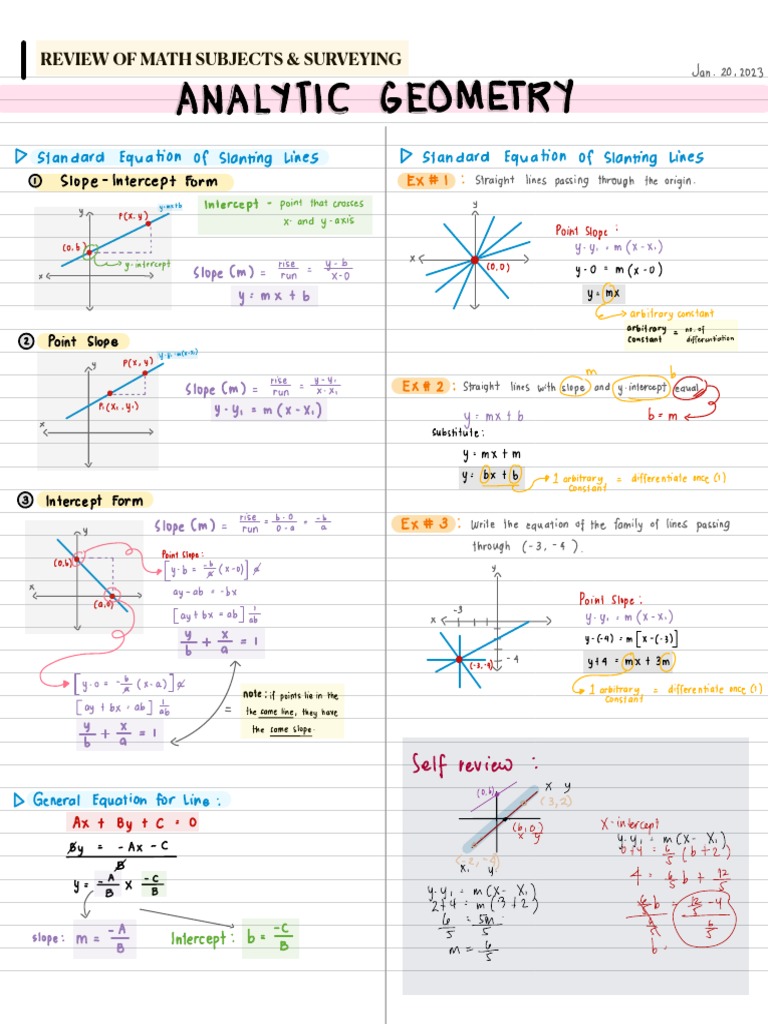 REVIEW OF MATH SUBJECTS & SURVEYING
Jan. 20, 2023
ANALYTIC GEOMETRY
▷ Standard Equation of Slanting Lines
① Slope-Intercept Form
y
y=mx+b
P(x, y)
(0, b)
y-intercept
x
Intercept - point that crosses
x- and y-axis
slope (m) = rise/run = y-b/x-0
y = mx + b
② Point Slope
y
y-y₁=m(x-x₁)
P(x, y)
P₁(x₁, y₁)
x
slope (m) = rise/run = y-y₁/x-x₁
y-y₁ = m(x-x₁)
③ Intercept Form
y
(0,b)
x
(a,0)
slope (m) = rise/run = b-0/0-a = -b/a
Point slope:
[y-b = -b/a (x-0)] a
ay-ab = -bx
[ay+bx = ab] 1/ab
y/b + x/a = 1
[y-0 = -b/a (x-a)] a
[ay + bx = ab] 1/ab
y/b + x/a = 1
= note: if points lie in the
the same line, they have
the same slope.
▷ General Equation for Line:
Ax + By + C = 0
By = -Ax - C
B
y = -A/B x -C/B
slope: m = -A/B
Intercept: b = -C/B
▷ Standard Equation of Slanting Lines
Ex # 1 : Straight lines passing through the origin.
y
x
(0,0)
Point Slope:
y-y₁ = m(x-x₁)
y-0 = m(x-0)
y = mx
arbitrary constant
arbitrary constant = no. of differentiation
m
b
Ex # 2 : Straight lines with slope and y-intercept equal
y = mx + b
b = m
Substitute:
y = mx + m
y = bx + b
1 arbitrary constant = differentiate once (1)
Ex # 3 : Write the equation of the family of lines passing
through (-3, -4).
y
-3
x
(-3,-4)
-4
Point Slope:
y-y₁ = m(x-x₁)
y-(-4) = m[x-(-3)]
y+4 = mx + 3m
1 arbitrary constant = differentiate once (1)
Self review :
(0,b)
x y
(3,2)
(b,0)
x y
(-2,-4)
x₁ y₁
y-y₁ = m(x-x₁)
2+4 = m(3+2)
6/5 = 5m/5
m = 6/5
x-intercept
y-y₁ = m(x-x₁)
0+4 = 6/5 (b+2)
4 = 6/5 b + 12/5